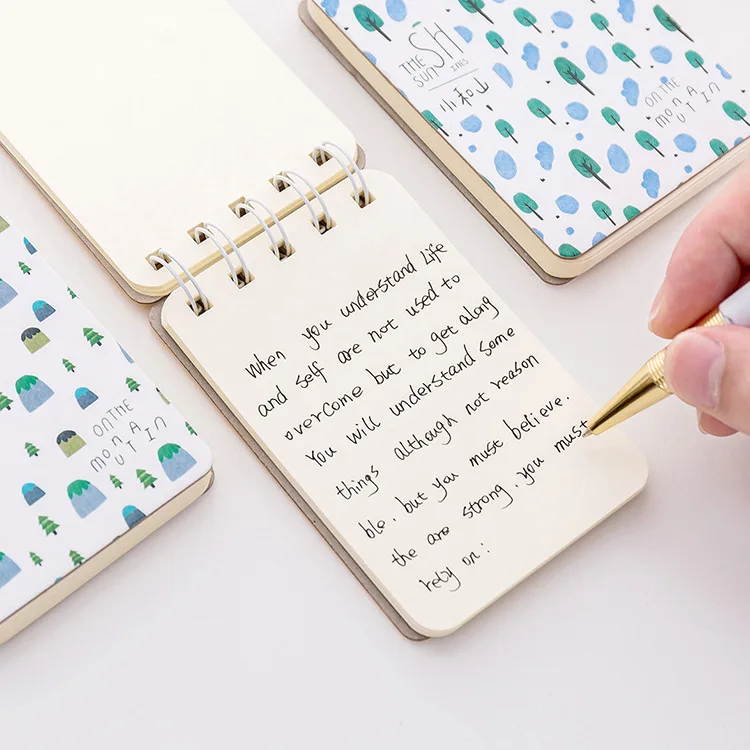 THE
SUN SH
INES
小和山
ON THE
MONA
UTIN
ON THE
MONA
UTIN
When you understand Life
and self are not used to
overcome but to get along
You will understand some
things although not reason
ble. but you must believe.
the are strong. you must
rely on: